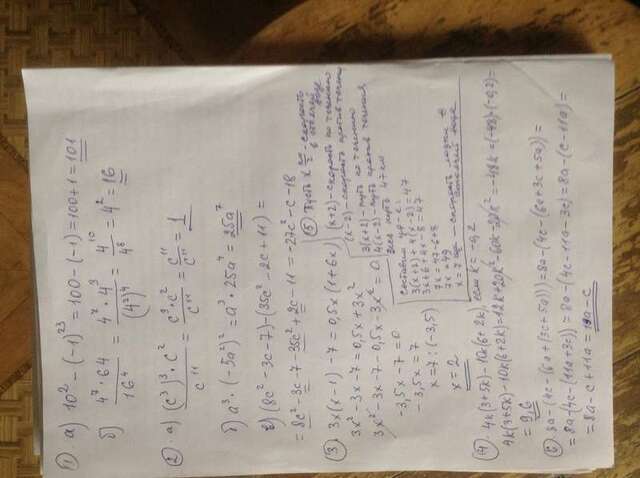 1. а) 10² − (−1)²³ = 100 − (−1) = 100 + 1 = 101
б) 4⁷ · 64 / 16⁴ = 4⁷ · 4³ / (4²)⁴ = 4¹⁰ / 4⁸ = 4² = 16
2. а) (c³)³ · c² / c¹¹ = c⁹ · c² / c¹¹ = c¹¹ / c¹¹ = 1
б) a³ · (−5a²)² = a³ · 25a⁴ = 25a⁷
в) (8c² − 3c − 7) − (35c² − 2c + 11) =
= 8c² − 3c − 7 − 35c² + 2c − 11 = −27c² − c − 18
3. 3x(x − 1) − 7 = 0,5x(1 + 6x)
3x² − 3x − 7 = 0,5x + 3x²
3x² − 3x − 7 − 0,5x − 3x² = 0
−3,5x − 7 = 0
−3,5x = 7
x = 7 : (−3,5)
x = 2
5. Пусть x км/ч − скорость
в стоячей
воде
(x+2) − скорость по течению
(x−2) − скорость против течения
3(x+2) − путь по течению
4(x−2) − путь против течения
Весь путь 47 км
Составим ур-е:
3(x+2) + 4(x−2) = 47
3x + 6 + 4x − 8 = 47
7x = 47 − 6 + 8
7x = 49
x = 7 − скорость лодки в
стоячей воде
4. 4k(3+5k) − 10k(6+2k), если k = −0,2
4k(3+5k) − 10k(6+2k) = 12k + 20k² − 60k − 20k² = −48k = (−48) · (−0,2) =
= 9,6
6. 8a − (4c − (6a + (3c + 5a))) = 8a − (4c − (6a + 3c + 5a)) =
= 8a − (4c − (11a + 3c)) = 8a − (4c − 11a − 3c) = 8a − (c − 11a) =
= 8a − c + 11a = 19a − c